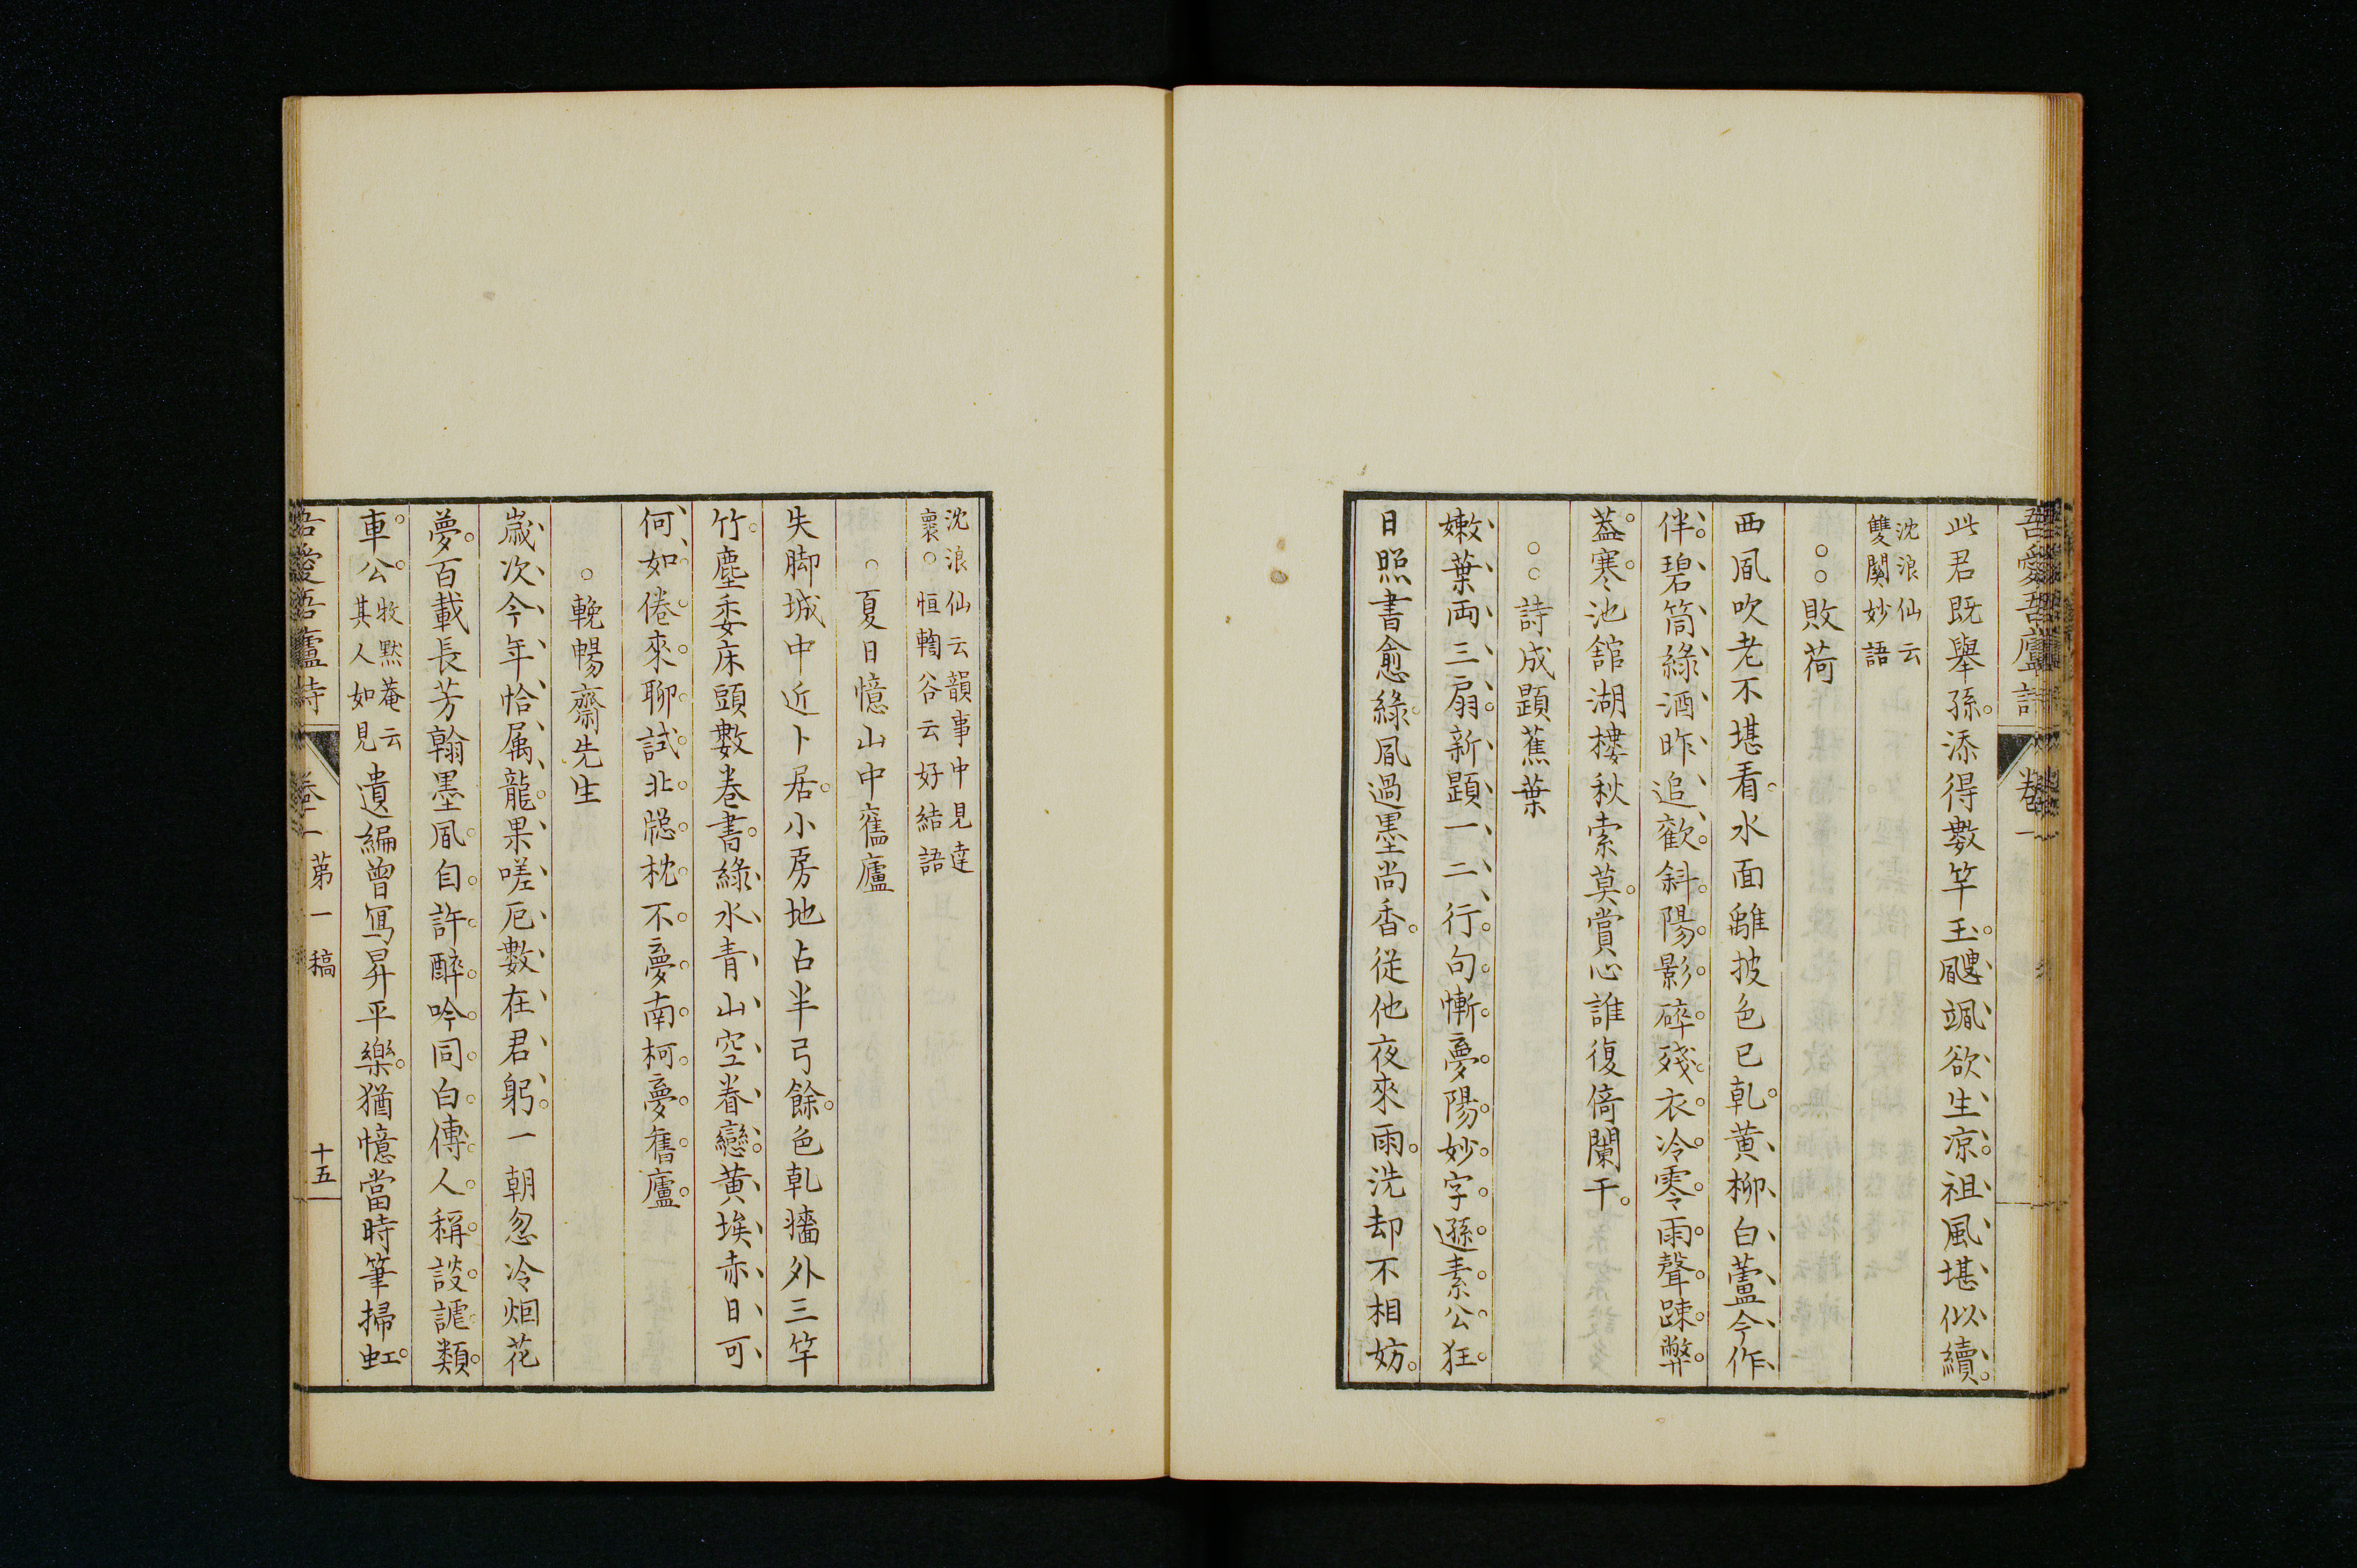 吾愛吾廬詩 卷一
此君既舉孫。添得數竿玉。颸颯欲生涼。祖風堪似續。
沈浪仙云
雙關妙語
○○敗荷
西風吹老不堪看。水面離披色已乹。黃柳白蘆今作
伴。碧筒綠酒昨追歡。斜陽影碎殘衣冷。零雨聲踈弊
葢寒。池舘湖樓秋索莫。賞心誰復倚闌干。
○○詩成題蕉葉
嫩葉両三扇。新題一二行。句慚夢陽妙。字遜素公狂。
日照書愈綠。風過墨尚香。從他夜來雨。洗却不相妨。
沈浪仙云韻事中見達
褱○恒轕谷云好結語
○夏日憶山中舊廬
失脚城中近卜居。小房地占半弓餘。色乹牆外三竿
竹。塵委床頭數卷書。綠水青山空眷戀。黃埃赤日可
何如。倦來聊試北牕枕。不夢南柯夢舊廬。
○輓暢齋先生
歲次今年恰属龍。果嗟厄數在君躬。一朝忽冷烟花
夢。百載長芳翰墨風。自許醉吟同白傅。人稱談謔類
車公。
牧黙菴云
其人如見
遺編曾寫昇平樂。猶憶當時筆掃虹。
吾愛吾廬詩 卷一 第一稿 十五